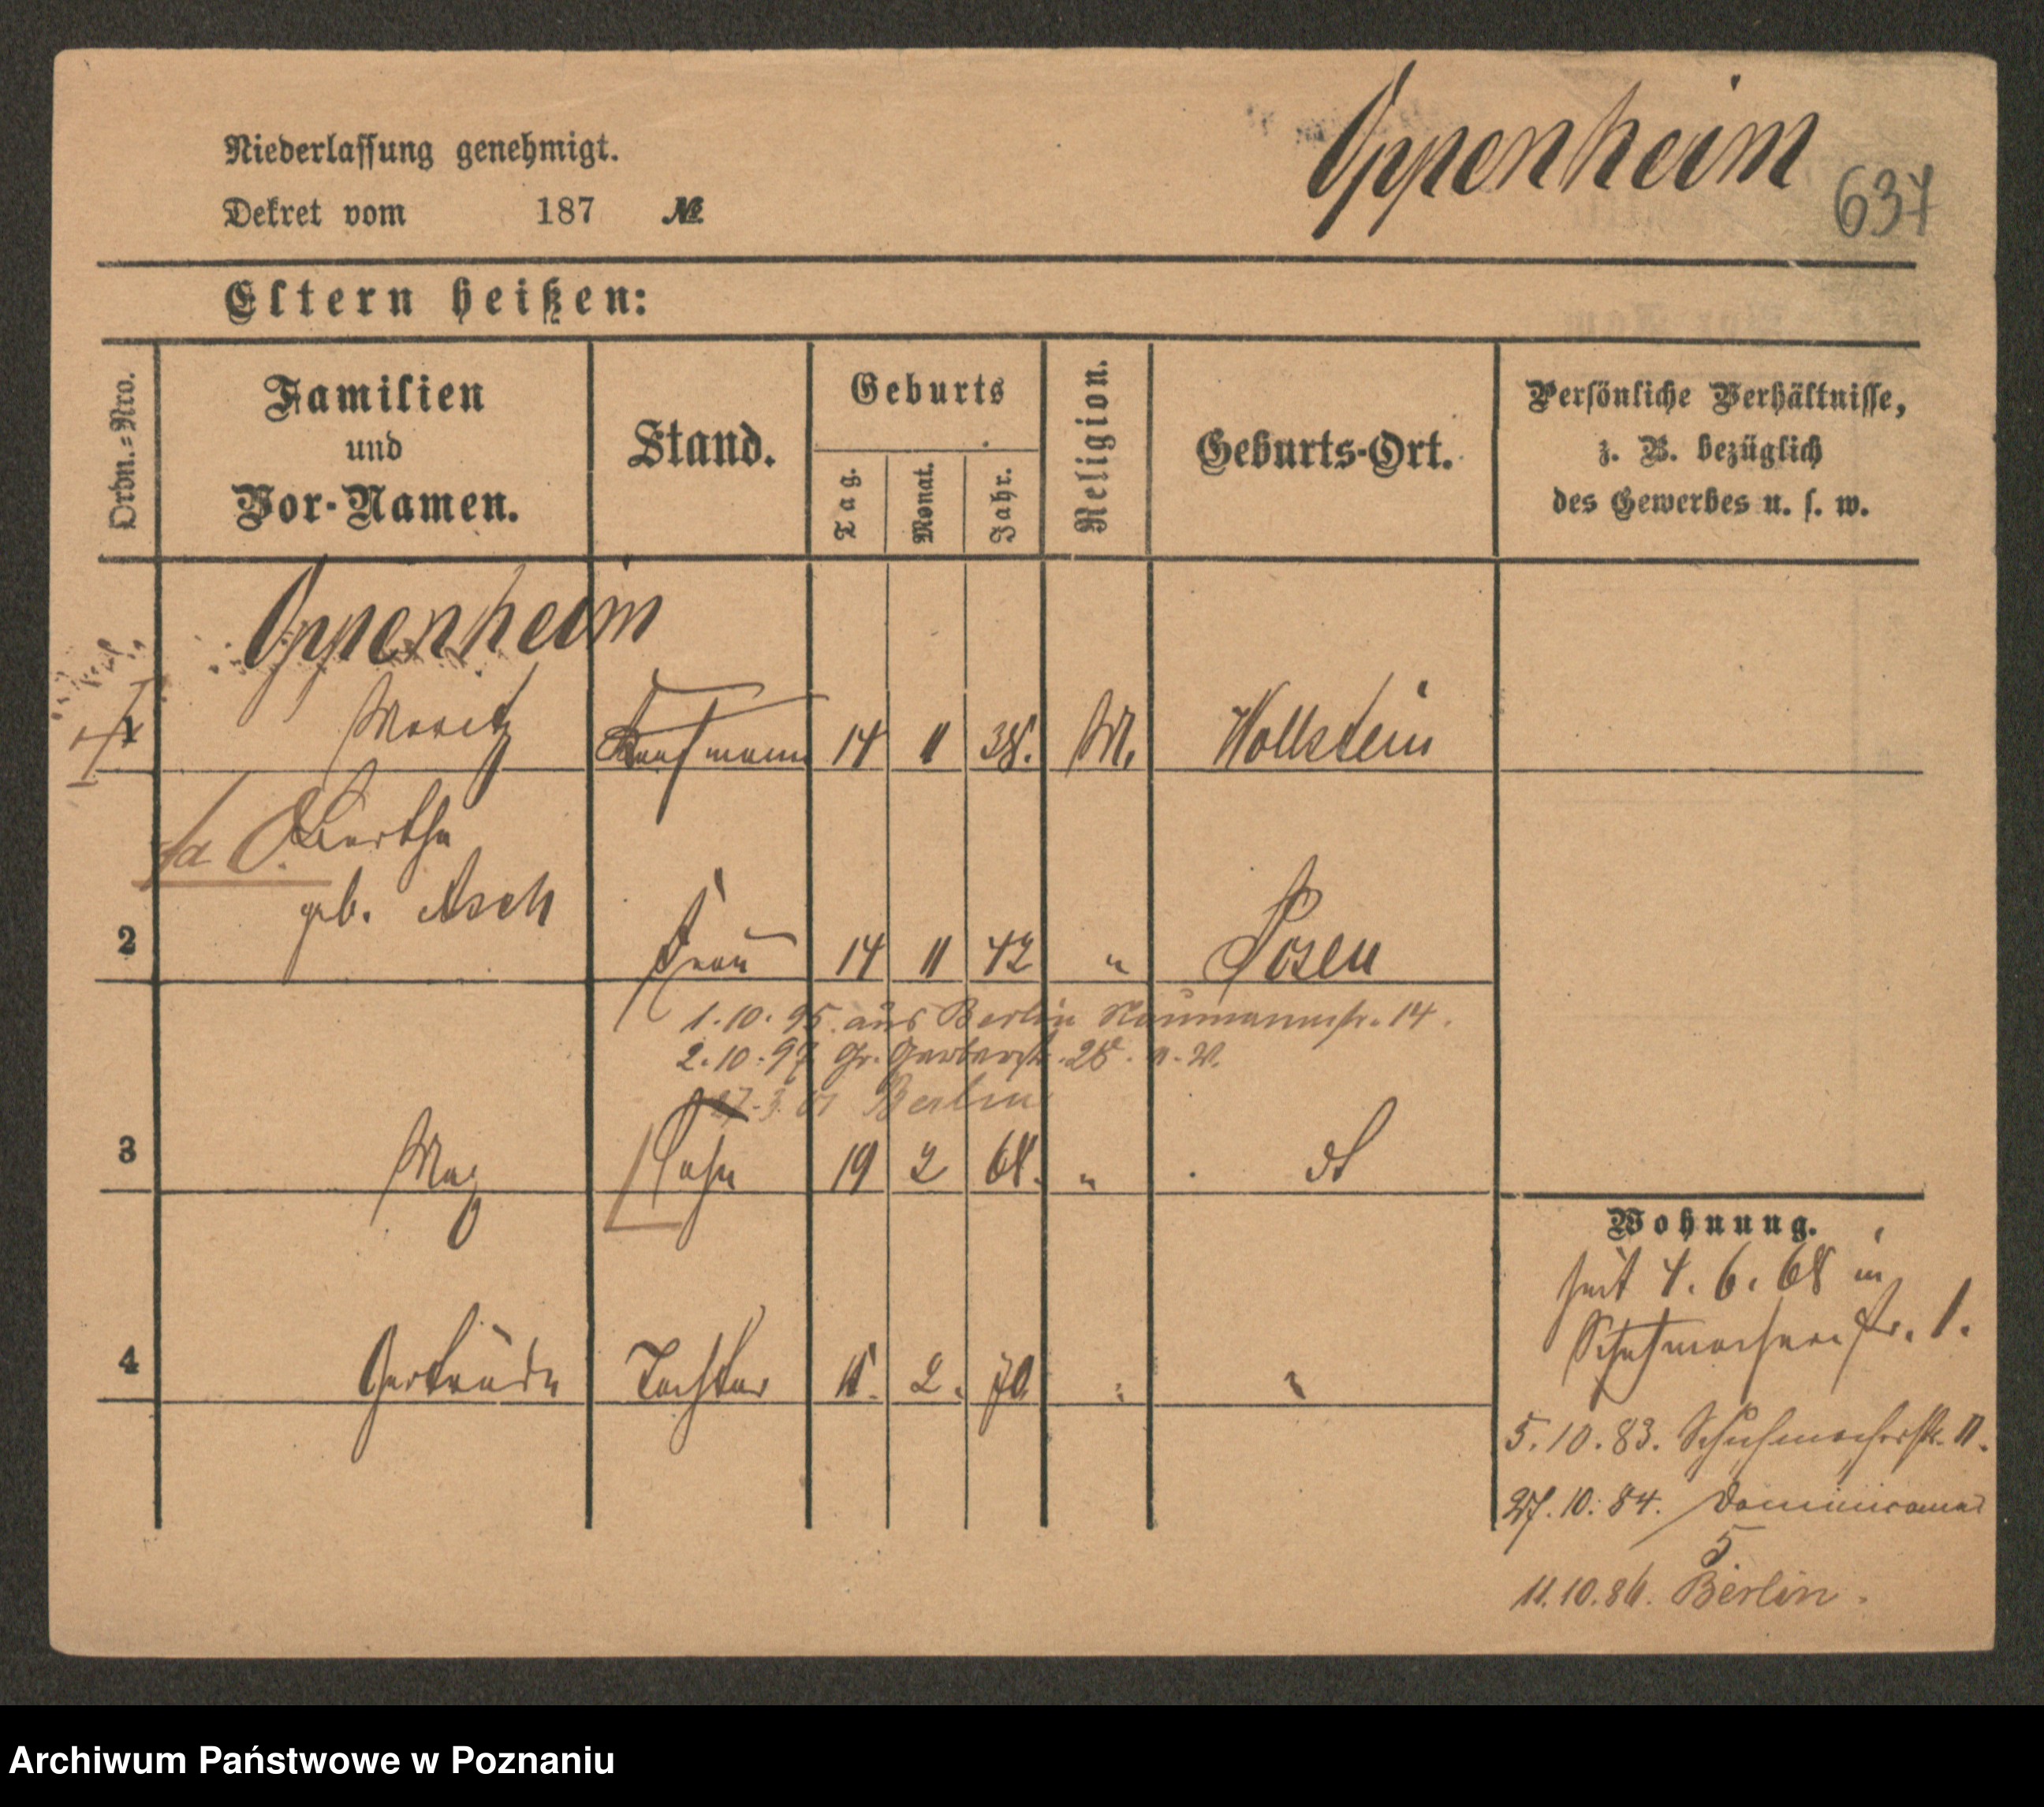 Oppenheim
637
Niederlassung genehmigt.
Dekret vom 187 №
Eltern heißen:
Ordn.=Nro.
Familien
und
Vor-Namen.
Stand.
Geburts
Tag.
Monat.
Jahr.
Religion.
Geburts-Ort.
Persönliche Verhältnisse,
z. B. bezüglich
des Gewerbes u. s. w.
Oppenheim
1 Moritz Kaufmann 14 11 38. M. Wollstein
Bertha
geb. Asch
2 Frau 14 11 42 " Posen
1. 10. 95. aus Berlin Naumannstr. 14.
2. 10. 97 Gr. Gerberstr. 28.
27. 3. 01 Berlin
3 Max Sohn 19 2 68. "
4 Gertrude Tochter 11. 2. 70. " "
Wohnung.
seit 4. 6. 68 in
Schuhmacherstr. 1.
5. 10. 83. Schuhmacherstr. 11.
27. 10. 84. Dominicaner
5
11. 10. 86. Berlin.
Archiwum Państwowe w Poznaniu